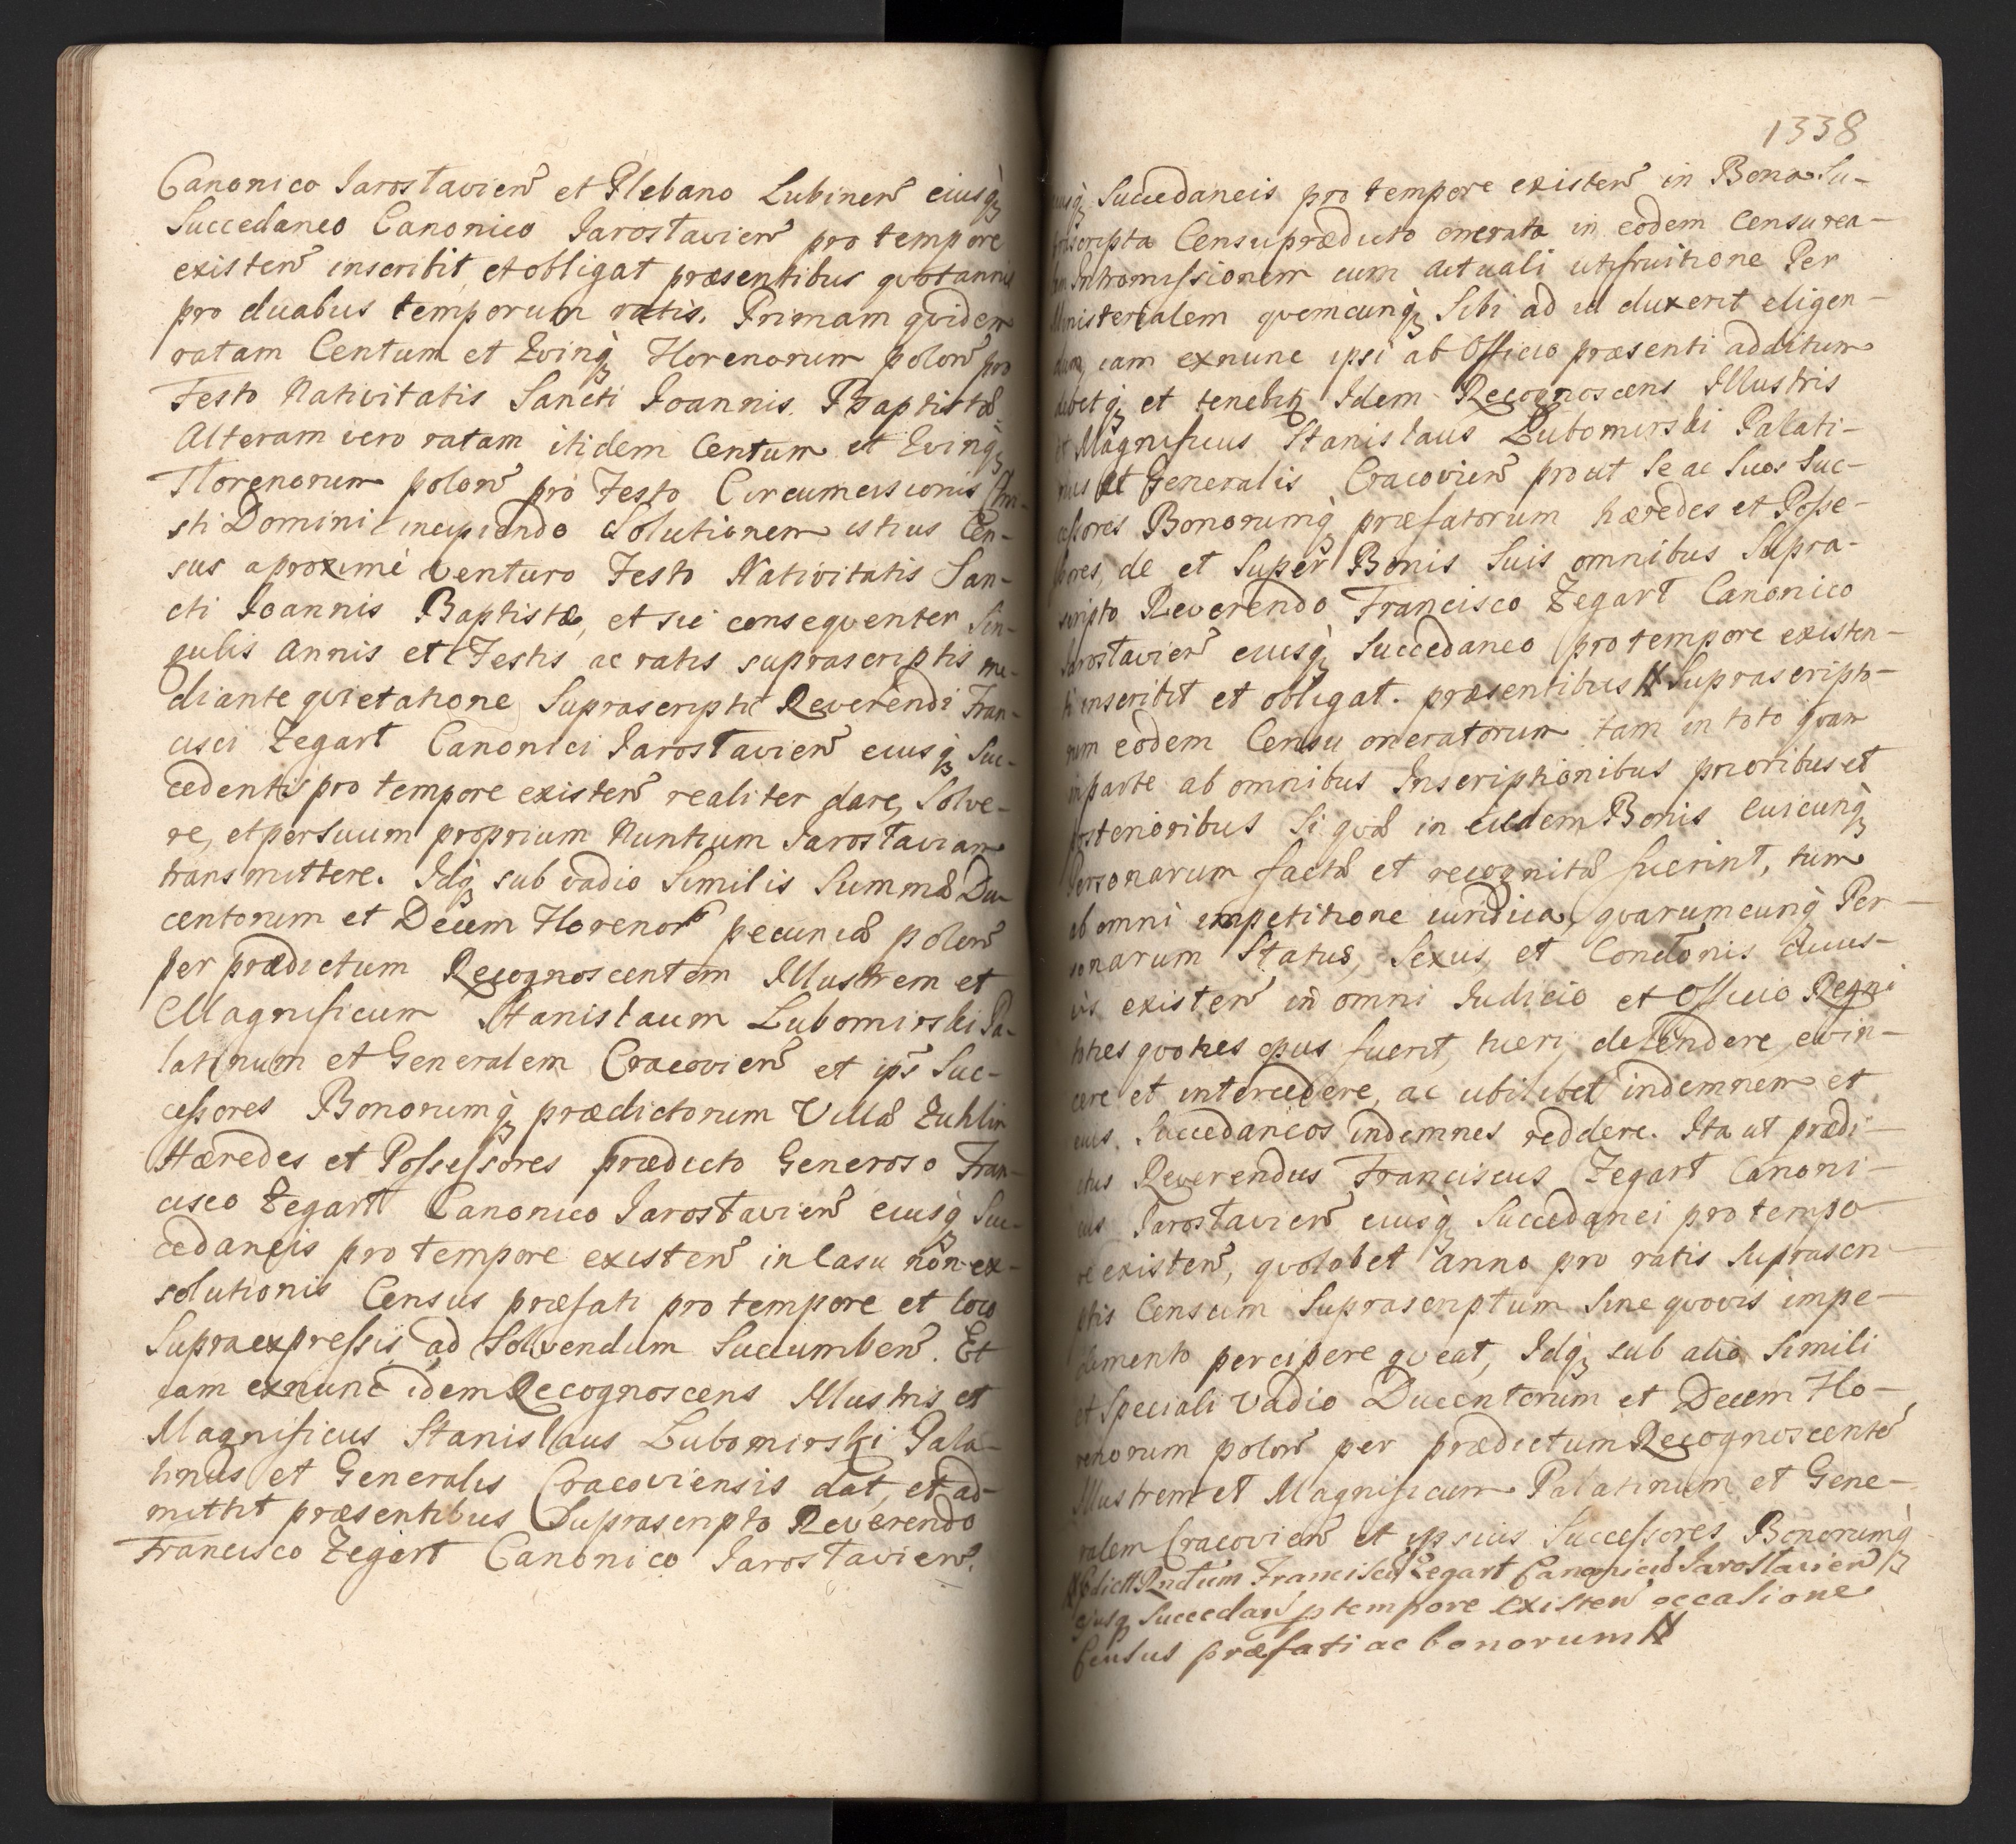 Canonico Jarosłavien̄ et Plebano Lubinen̄ eiusq̨
Succedaneo Canonico Jarosłavien̄ pro tempore
existen̄ inscribit, et obligat præsentibus qvotannis
pro duabus temporum ratis. Primam qvidem
ratam Centum et Qvinq̨ Florenorum polon̄ pro
Festo Nativitatis Sancti Joannis Baptistæ
Alteram vero ratam itidem Centum et Qvinq̨
Florenorum polon̄ pro Festo Circumcisionis Chri-
sti Domini incipiendo Solutionem istius Cen-
sus a proxime venturo Festo Nativitatis San-
cti Joannis Baptistæ, et sic conseqventer Sin-
gulis Annis et Festis ac ratis suprascriptis me-
diante qvietatione Suprascripti Reverendi Fran-
cisci Zegart Canonici Jarosłavien̄ eiusq̨ Suc-
cedentis pro tempore existen̄ realiter dare, Solve-
re, et per Suum proprium Nuntium Jarosłaviam
transmittere. Idq̨ sub vadio Similis Summæ Du-
centorum et Decem Florenor pecuniæ polon̄
per prædictum Recognoscentem Illustrem et
Magnificum Stanisłaum Lubomirski Pa-
latinum et Generalem Cracovien̄ et ips̄ Suc-
cessores Bonorumq̨ prædictorum Villæ Zuhlin
Hæredes et Possessores prædicto Generoso Fran-
cisco Zegart Canonico Jarosłavien̄ eiusq̨ Suc-
cedaneis pro tempore existen̄ in Casu non ex-
solutionis Census præfati pro tempore et loco
Supraexpressis ad Solvendum Succumben̄. Et
iam exnunc idem Recognoscens Illustris et
Magnificus Stanislaus Lubomirski Pala-
tinus et Generalis Cracoviensis dat, et ad-
mittit præsentibus Suprascripto Reverendo
Francisco Zegart Canonico Jarosłavien̄.
1338
eiusq̨ Succedaneis pro tempore existen̄ in Bona Su-
prascripta Censu prædicto onerata in eodem Censu rea-
lem Intromissionem cum actuali utifruitione Per
Ministerialem qvemcunq̨ Sibi ad id duxerit eligen-
dum, iam exnunc ipsi ab Officio præsenti additum
debetq̨ et tenebitꝝ Idem Recognoscens Illustris
et Magnificus Stanisłaus Lubomirski Palati-
nus et Generalis Cracovien̄ prout Se ac Suos Suc-
cessores Bonorumq̨ præfatorum hæredes et Posse-
ssores, de et Super Bonis Suis omnibus Supra-
scripto Reverendo Francisco Zegart Canonico
Jarosłavien̄ eiusq̨ Succedaneo pro tempore existen-
ti inscribit et obligat. præsentibus # Suprascripto-
rum eodem Censu oneratorum tam in toto qvam
in parte ab omnibus Inscriptionibus prioribus et
posterioribus Si qvæ in eisdem Bonis cuicunq̨
Personarum factæ et recognitæ fuerint, tum
ab omni impetitione iuridica, qvarumcunq̨ Per-
sonarum Status, Sexus, et Condi̇onis cuius-
vis existen̄ in omni Iudicio et Officio Regni
toties qvoties opus fuerit, tueri, defendere, evin-
cere et intercedere, ac ubilibet indemnem et
eius Succedaneos indemnes reddere. Ita ut prædi-
ctus Reverendus Franciscus Zegart Canoni-
cus Jarosłavien̄ eiusq̨ Succedanei pro tempo-
re existen̄, qvolibet anno pro ratis Suprascri-
ptis Censum Suprascriptum Sine qvovis impe-
dimento percipere qveat, Idq̨ sub alio Simili
et Speciali Vadio Ducentorum et Decem Flo-
renorum polon̄ per prædictum Recognoscente̅
Illustrem et Magnificum Palatinum et Gene-
ralem Cracovien̄ et ipsius Successores Bonorumq̨
# pdictt Rndum Franciscu̅ Zegart Canonicu̅ Jarosłavien̄
ejusq̨ Succedan̄ ptempore existen̄ occasione
Census præfati ac bonorum #